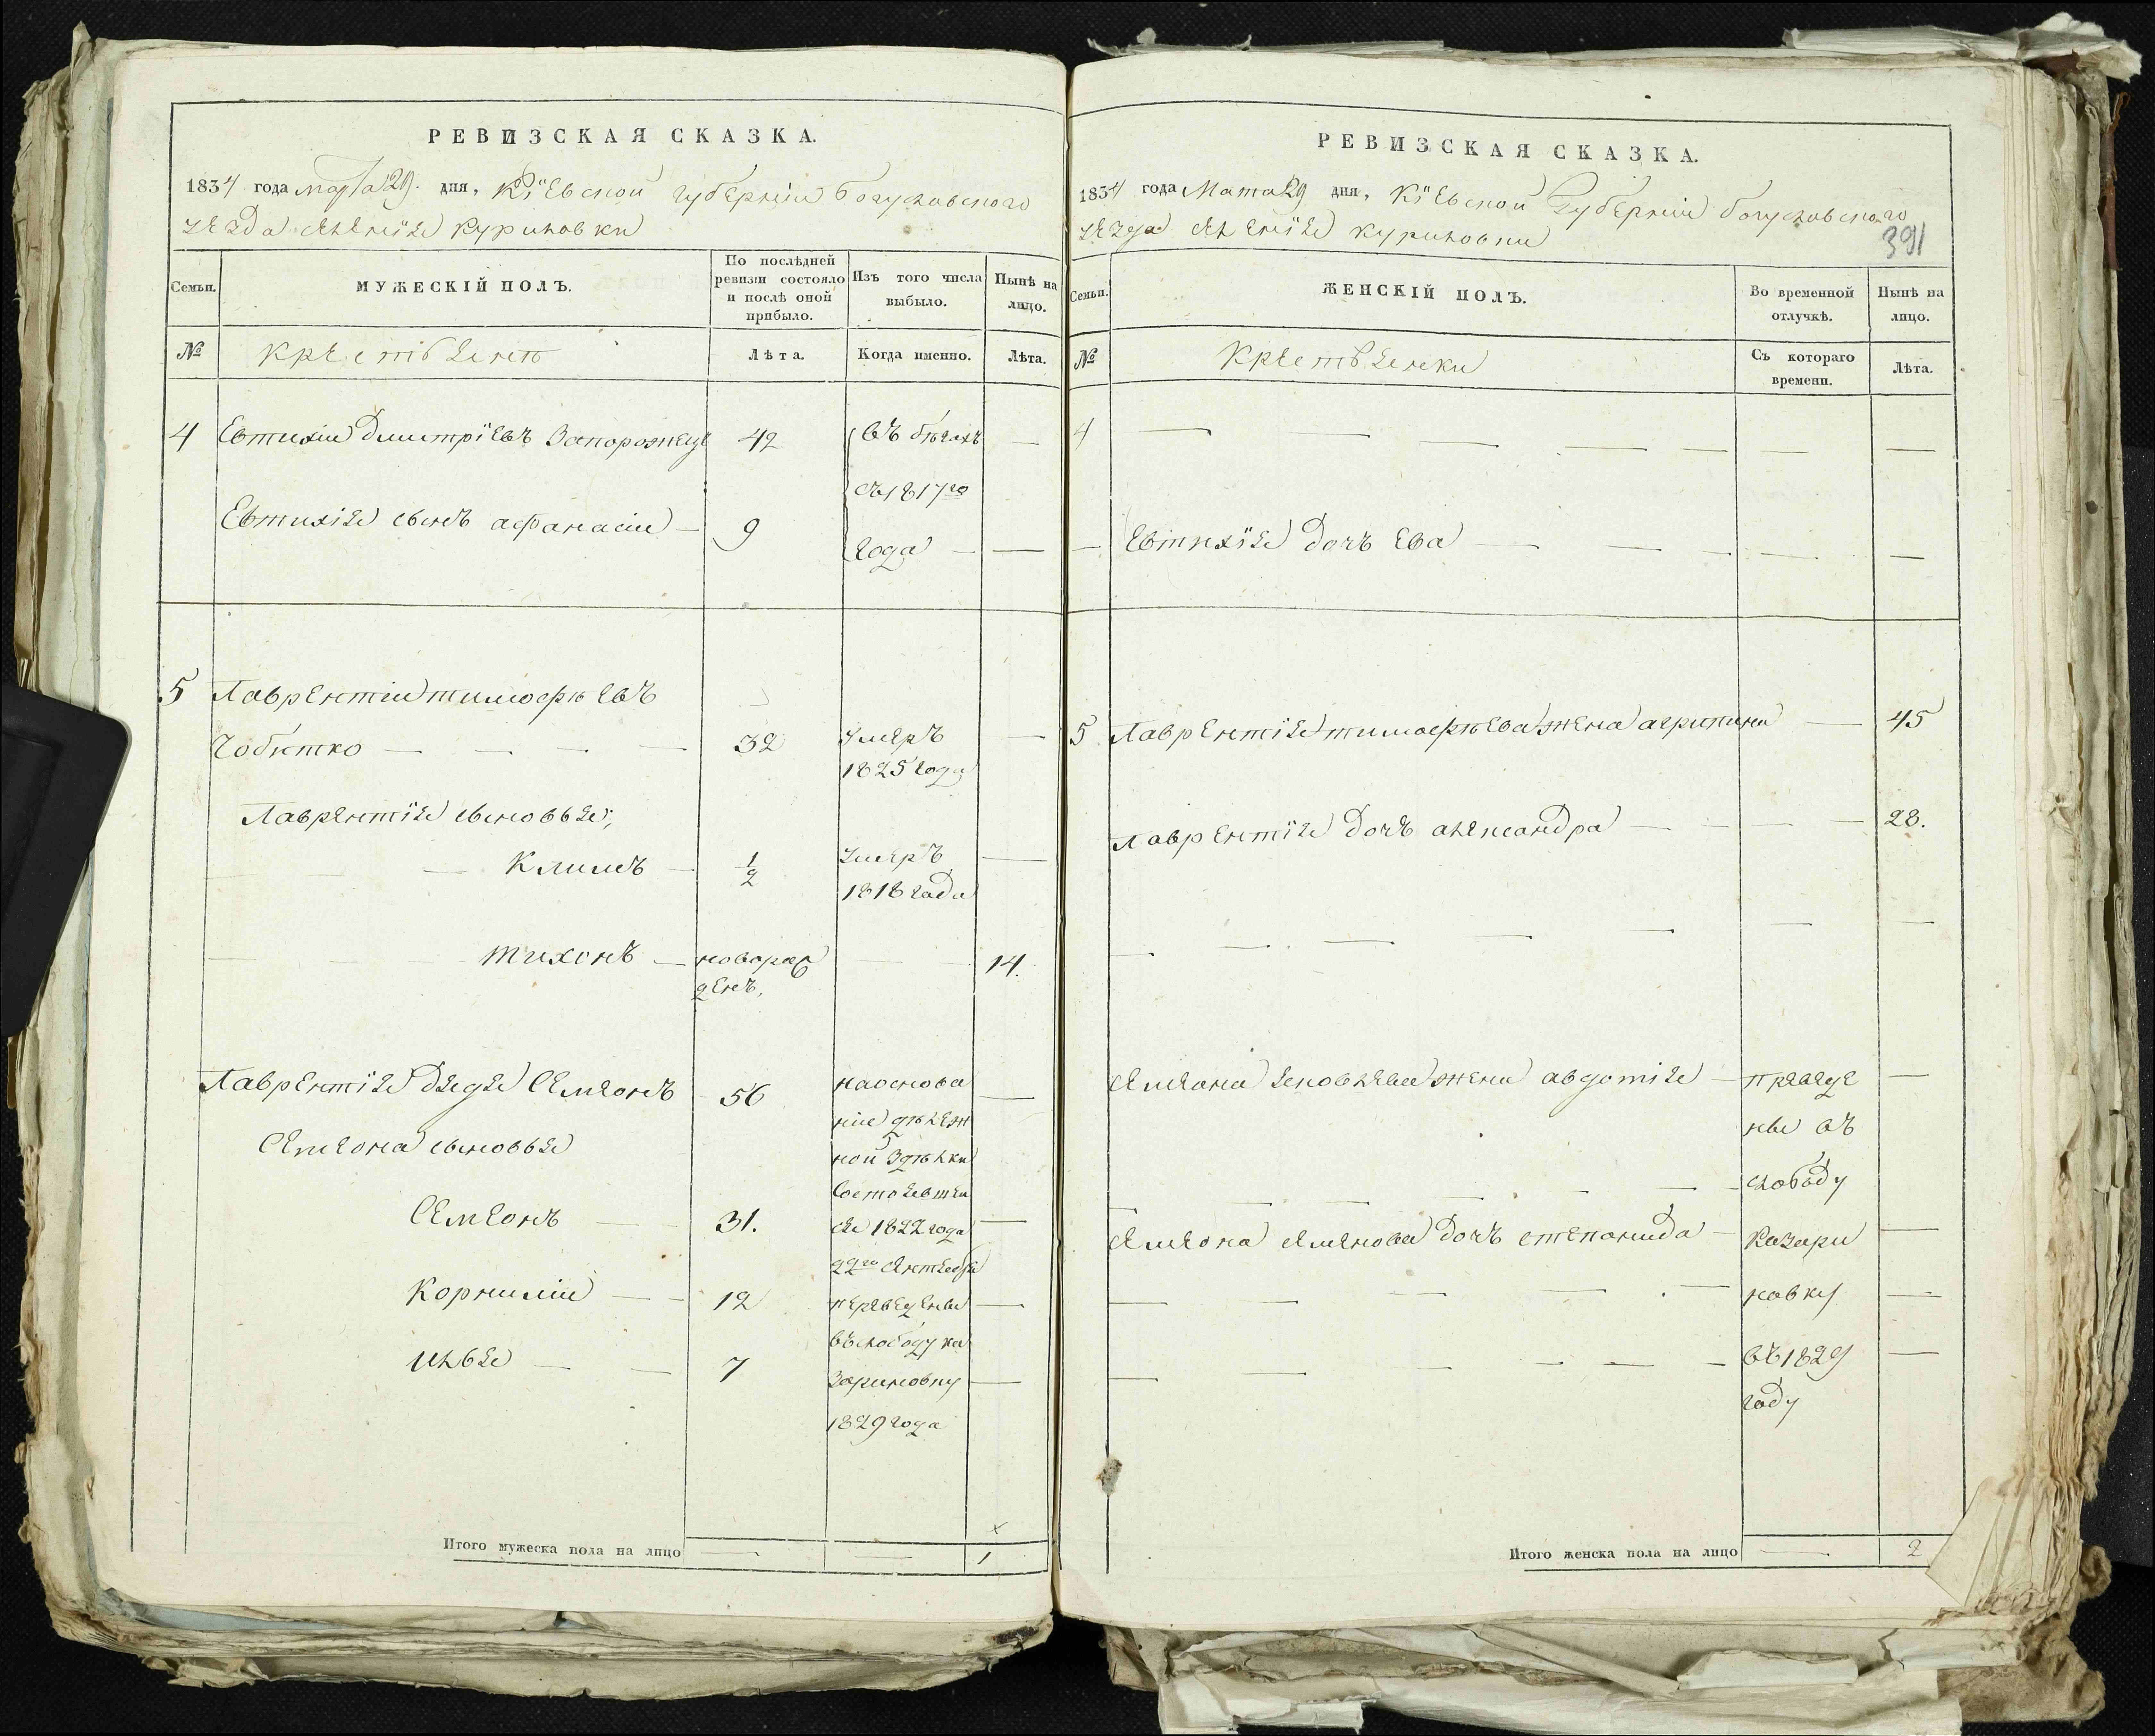 РЕВИЗСКАЯ СКАЗКА.
1834 года марта 29. дня, Кіевской губерніи Богуславского
уезда селенія Куриловки
Семьи.
МУЖЕСКІЙ ПОЛЪ.
По послѣдней ревизіи состояло и послѣ оной прибыло.
Изъ того числа выбыло.
Нынѣ на лицо.
№
крестьянъ
Лѣта.
Когда именно.
Лѣта.
4 Евтихіи Дмитріевъ Запорожецъ 42 въ бѣгахъ —
съ 1817го
Евтихія сынъ афанасіи — 9 года — —
5 Лаврентіи тимофѣевъ
Чобитко — — — — 32 умеръ —
1825 года
Лаврентія сыновья;
Климъ — 1/2 умеръ —
1818 года
тихонъ — новорож — 14.
денъ.
Лаврентія дядя Семионъ 56 на основа —
ніи дѣлеж
Семиона сыновья
ной здѣлки
состоявшей
Семионъ — 31. ся 1822 года —
22го
Корнилiи — 12 переведены —
въ слободу ка
Илья — — 7 зариновку —
1829 года
Итого мужеска пола на лицо — — 1
РЕВИЗСКАЯ СКАЗКА.
1834 года Мата 29 дня, Кіевской Губерніи богуславского
уезда селенія куриловки
391
Семьи.
ЖЕНСКІЙ ПОЛЪ.
Во временной отлучкѣ.
Нынѣ на лицо.
№
Крестьянки
Съ котораго времени.
Лѣта.
4 — — — — — — —
— Евтихія дочъ Ева — — — — —
5 Лаврентія тимофѣева жена агрипина — 45
Лаврентія дочъ александра — — — — 28.
— — — — — — — —
Семиона жена авдотія — преведе —
ны въ
— — — — — слободу
Семиона Семенова дочъ степанида — Казари —
— — — — — новку —
— — — — — — въ 1829 —
году
Итого женска пола на лицо — 2